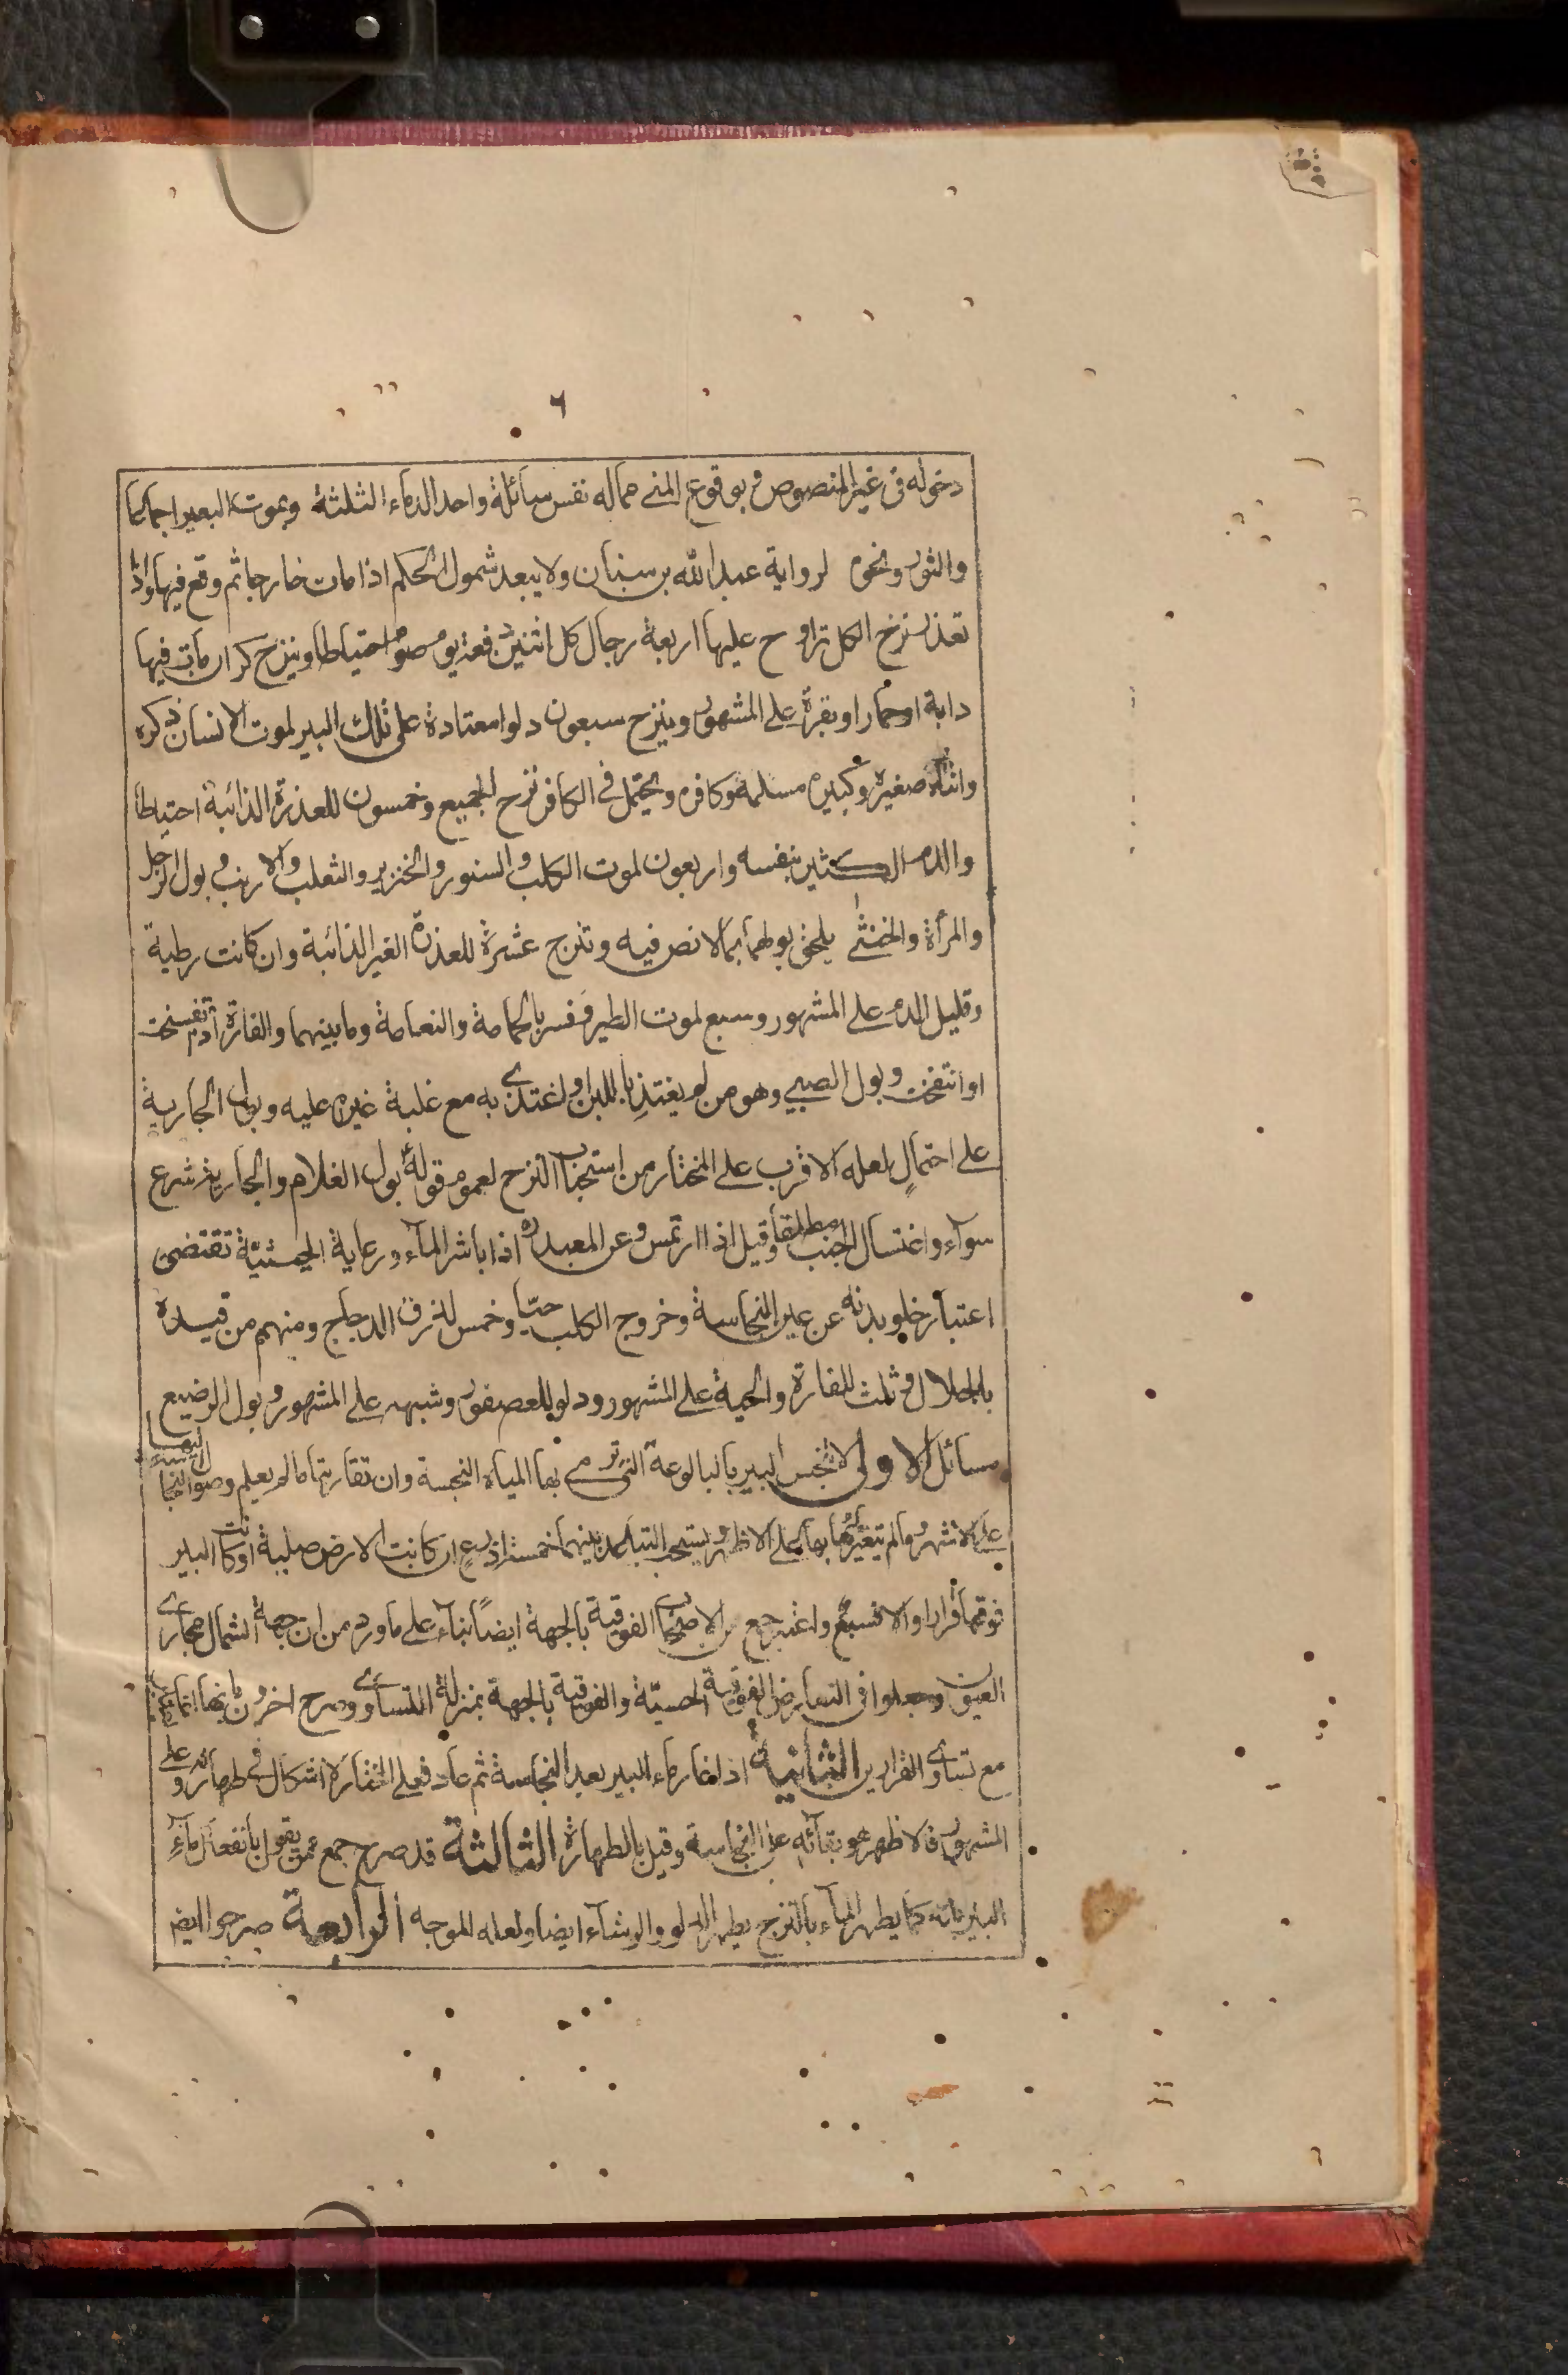 ٦
دخوله فى غير المنصوص و بوقوع المنى مما له نفس سائلة واحد الدماء الثلثة وبموت البعير اجماعا
والثور ونحوه لرواية عبد الله بن سنان ولا يبعد شمول الحكم اذا مات خارجا ثم وقع فيها واذا
تعذر نزح الكل تراوح عليها اربعة رجال كل اثنين دفعة يوم صوم احتياطا وينزح كر ان مات فيها
دابة او حمار او بقرة على المشهور وينزح سبعون دلوا معتادة على تلك البير لموت الانسان ذكره
وانثاه صغيره وكبيره مسلمه وكافره ويحتمل فى الكافر نزح الجميع وخمسون للعذرة الذائبة احتياطا
والدم الكثير بنفسه واربعون لموت الكلب والسنور والخنزير والثعلب والارنب و بول الرجل
والمرأة والخنثى يلحق بولهما بما لا نص فيه وتنزح عشرة للعذرة الغير الذائبة وان كانت رطبة
وقليل الدم على المشهور وسبع لموت الطير وفسر بالحمامة والنعامة وما بينهما والفارة اذا تفسخت
او انتفخت وبول الصبى وهو من لم يغتذ باللبن او اغتذى به مع غلبة غيره عليه وبول الجارية
على احتمال لعله الاقرب على المختار من استحباب النزح لعموم قوله بول الغلام والجارية شرع
سوآء واغتسال الجنب مطلقا وقيل اذا ارتمس وعن المعبد اذا باشر المآء ورعاية الحيثيّة تقتضى
اعتبار خلو بدنه عن عين النجاسة وخروج الكلب حيّا وخمس لذرق الدجاج ومنهم من قيده
بالجلال و ثلث للفارة والحية على المشهور ودلو للعصفور وشبهه على المشهور وبول الرضيع
مسائل الاولى لا تنجس البير بالبالوعة التى ترمى بها المياه النجسة وان تقاربتا ما لم يعلم وصول النجاسة اليها
على الاشهر وما لم يتغير بها على الاظهر ويستحب التباعد بينهما خمسة اذرع ان كانت الارض صلبة او كانت البير
فوقها قرارا والا فسبع واعتبر جمع من الاصحاب الفوقية بالجهة ايضًا بناء على ما ورد من ان جهة الشمال مجارى
العيون وجعلوا فى التعارض الفوقية الحسيّة والفوقية بالجهة بمنزلة المتساوى وصرح اخرون بانها انما تعتبر
مع تساوى القرارين الثانية اذا غار ماء البير بعد النجاسة ثم عاد فعلى المختار لا اشكال فى طهارته وعلى
المشهور فالاظهر هو بقآئه على النجاسة وقيل بالطهارة الثالثة قد صرح جمع ممن يقول بانفعال مآء
البير بانه كما يطهر المآء بالنزح يطهر الدلو والرشآء ايضا ولعله الموجه الرابعة صرحوا ايضا